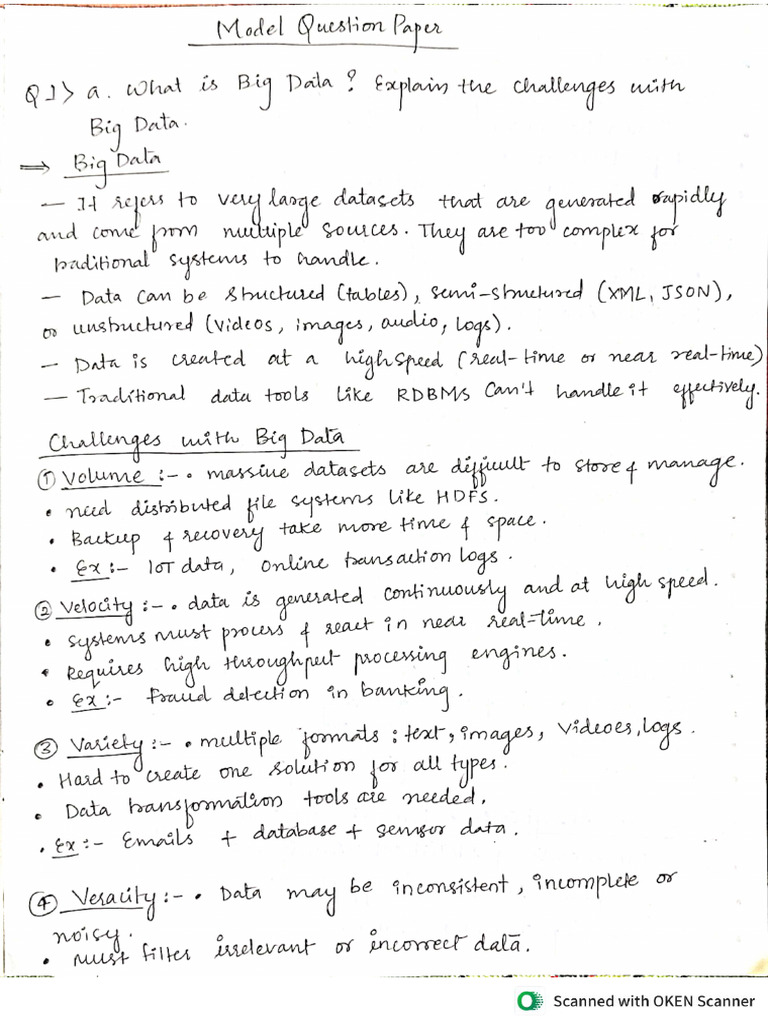 Model Question Paper
Q1> a. What is Big Data? Explain the challenges with
Big Data.
⇒ Big Data
— It refers to very large datasets that are generated rapidly
and come from multiple sources. They are too complex for
traditional systems to handle.
— Data can be structured (tables), semi-structured (XML, JSON),
or unstructured (videos, images, audio, logs).
— Data is created at a high speed (real-time or near real-time)
— Traditional data tools like RDBMS can't handle it effectively.
Challenges with Big Data
① Volume :- • massive datasets are difficult to store & manage.
• need distributed file systems like HDFS.
• Backup & recovery take more time & space.
• Ex :- IoT data, Online transaction logs.
② Velocity :- • data is generated continuously and at high speed.
• systems must process & react in near real-time.
• Requires high throughput processing engines.
• Ex :- Fraud detection in banking.
③ Variety :- • multiple formats : text, images, videoes, logs.
• Hard to create one solution for all types.
• Data transformation tools are needed.
• Ex :- Emails + database + sensor data.
④ Veracity :- • Data may be inconsistent, incomplete or
noisy.
• must filter irrelevant or incorrect data.
Scanned with OKEN Scanner